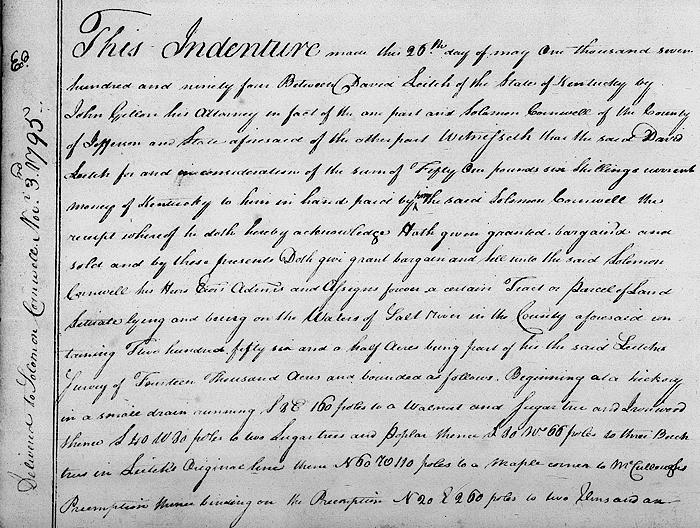 This Indenture made this 26th day of may One thousand seven
hundred and ninety four Between David Leitch of the State of Kentucky by
John Gellon his Attorney in fact of the one part and Solomon Cornwell of the County
of Jefferson and State aforesaid of the other part Witnesseth that the said David
Leitch for and in consideration of the sum of Fifty One pounds six Shillings current
money of Kentucky to him in hand paid by the said Solomon Cornwell the
receipt whereof he doth hereby acknowledge Hath given granted bargaind and
sold and by these presents Doth give grant bargain and sell unto the said Solomon
Cornwell his Heirs Exors Admrs and Assignes forever a certain Tract or Parcel of Land
Situate lying and being on the Waters of Salt River in the County aforesaid con-
taining Two hundred fifty six and a half Acres being part of his the said Leitchs
Survey of Fourteen Thousand Acres and bounded as follows. Beginning at a hickory
in a small drain running S 8 E 160 poles to a Walnut and Sugar tree and Ironwood
thence S 40 W 30 poles to two Sugar trees and Poplar thence S 30 W 66 poles to three Beech
trees in Leitch's Original line thence N 60 W 110 poles to a Maple corner to McCulloughs
Preemption thence binding on the Preemption N 20 E 260 poles to two Elms and an
Delivered to Solomon Cornwell Novr 3rd 1795.